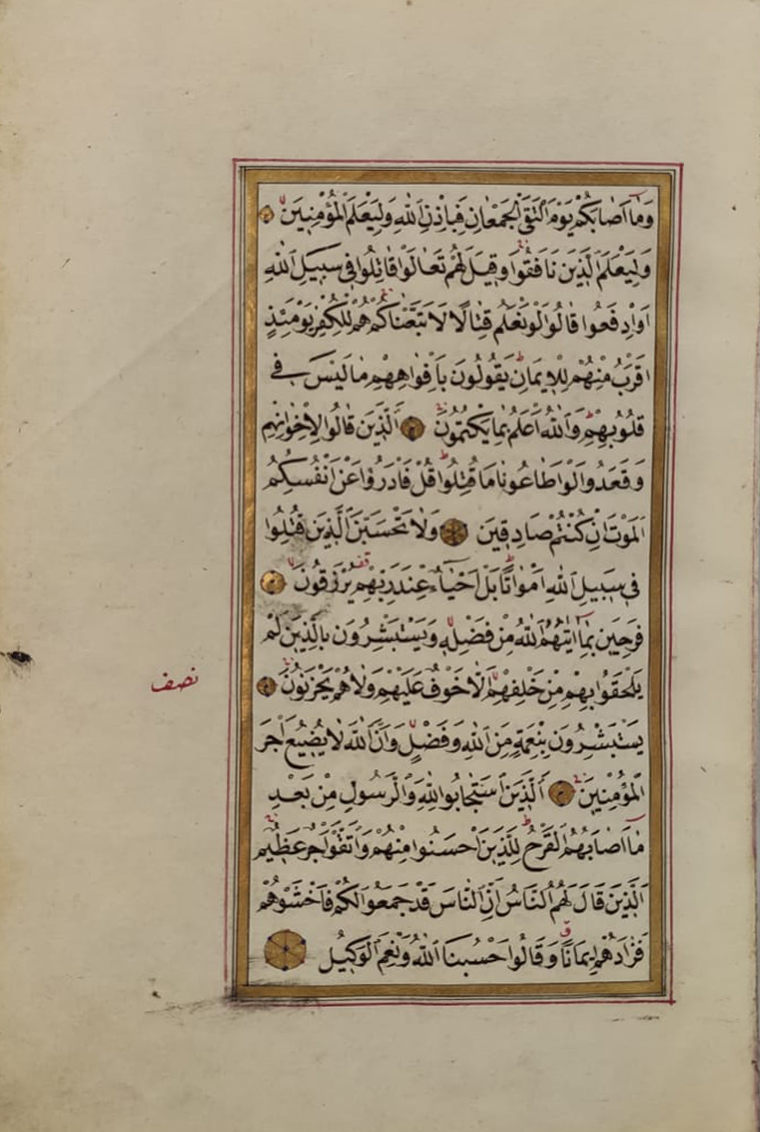 وَمَا اَصَابَكُمْ يَوْمَ الْتَقَى الْجَمْعَانِ فَبِاِذْنِ اللّٰهِ وَلِيَعْلَمَ الْمُؤْمِنِينَ
وَلِيَعْلَمَ الَّذِينَ نَافَقُوا وَقِيلَ لَهُمْ تَعَالَوْا قَاتِلُوا فِى سَبِيلِ اللّٰهِ
اَوِ ادْفَعُوا قَالُوا لَوْ نَعْلَمُ قِتَالًا لَاتَّبَعْنَاكُمْ هُمْ لِلْكُفْرِ يَوْمَئِذٍ
اَقْرَبُ مِنْهُمْ لِلْاِيمَانِ يَقُولُونَ بِاَفْوَاهِهِمْ مَا لَيْسَ فِى
قُلُوبِهِمْ وَاللّٰهُ اَعْلَمُ بِمَا يَكْتُمُونَ اَلَّذِينَ قَالُوا لِاِخْوَانِهِمْ
وَقَعَدُوا لَوْ اَطَاعُونَا مَا قُتِلُوا قُلْ فَادْرَؤُا عَنْ اَنْفُسِكُمُ
الْمَوْتَ اِنْ كُنْتُمْ صَادِقِينَ وَلَا تَحْسَبَنَّ الَّذِينَ قُتِلُوا
فِى سَبِيلِ اللّٰهِ اَمْوَاتًا بَلْ اَحْيَاءٌ عِنْدَ رَبِّهِمْ يُرْزَقُونَ
فَرِحِينَ بِمَا اٰتٰيهُمُ اللّٰهُ مِنْ فَضْلِهِ وَيَسْتَبْشِرُونَ بِالَّذِينَ لَمْ
يَلْحَقُوا بِهِمْ مِنْ خَلْفِهِمْ اَلَّا خَوْفٌ عَلَيْهِمْ وَلَا هُمْ يَحْزَنُونَ
نصف
يَسْتَبْشِرُونَ بِنِعْمَةٍ مِنَ اللّٰهِ وَفَضْلٍ وَاَنَّ اللّٰهَ لَا يُضِيعُ اَجْرَ
الْمُؤْمِنِينَ اَلَّذِينَ اسْتَجَابُوا لِلّٰهِ وَالرَّسُولِ مِنْ بَعْدِ
مَا اَصَابَهُمُ الْقَرْحُ لِلَّذِينَ اَحْسَنُوا مِنْهُمْ وَاتَّقَوْا اَجْرٌ عَظِيمٌ
اَلَّذِينَ قَالَ لَهُمُ النَّاسُ اِنَّ النَّاسَ قَدْ جَمَعُوا لَكُمْ فَاخْشَوْهُمْ
فَزَادَهُمْ اِيمَانًا وَقَالُوا حَسْبُنَا اللّٰهُ وَنِعْمَ الْوَكِيلُ